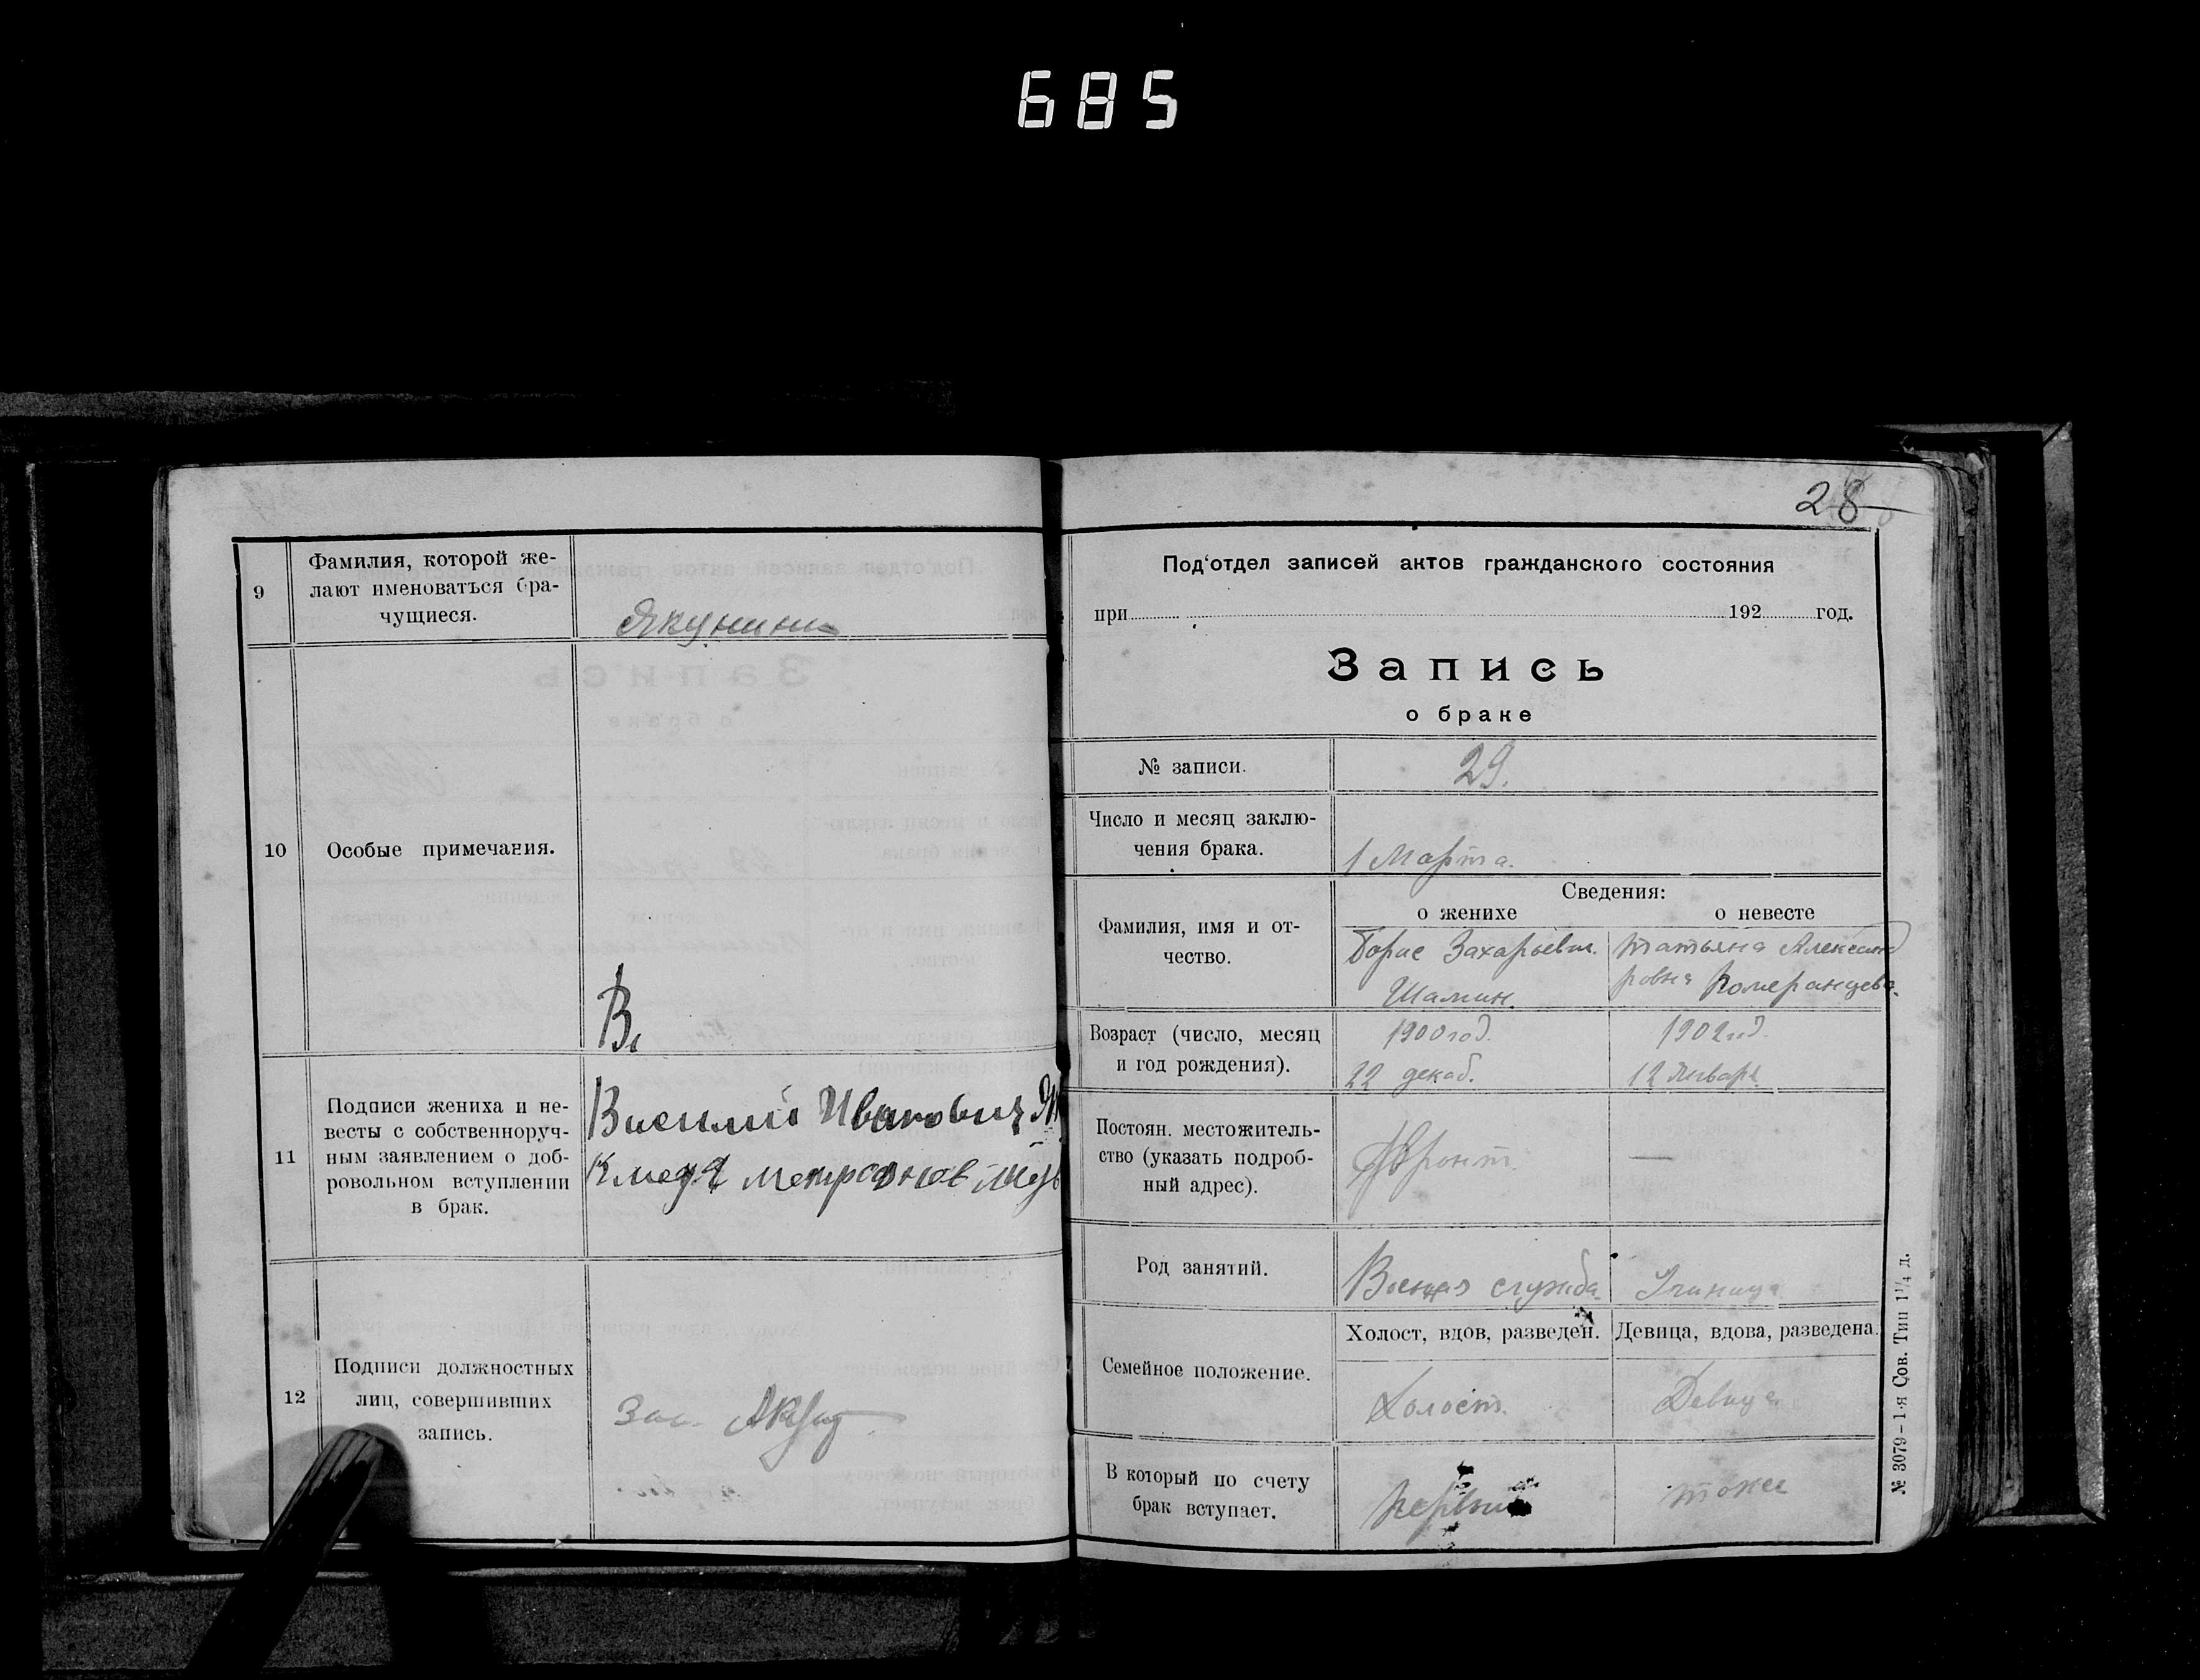 685
9
Фамилия, которой же-
лают именоваться бра-
чущиеся.
Якунины
10
Особые примечания.
В
11
Подписи жениха и не-
весты с собственноруч-
ным заявлением о доб-
ровольном вступлении
в брак.
Василий Иванович Я
12
Подписи должностных
лиц, совершивших
запись.
Зав.
28
Под'отдел записей актов гражданского состояния
при 192 год.
Запись
о браке
№ записи.
29.
Число и месяц заклю-
чения брака.
1 Марта.
Сведения:
о женихе
о невесте
Фамилия, имя и от-
чество.
Борис Захарьевич.
Шамин.
Татьяна Александ
ровна Померанцева.
Возраст (число, месяц
и год рождения).
1900 год.
22 декаб.
1902 год.
12 Января
Постоян. местожитель-
ство (указать подроб-
ный адрес).
Фронт.
—
Род занятий.
Военная служба.
Ученица
Семейное положение.
Холост, вдов, разведен.
Девица, вдова, разведена.
Холост.
Девица
В который по счету
брак вступает.
первый
тоже
№ 3079—1-я Сов. Тип 1¹/₄ д.